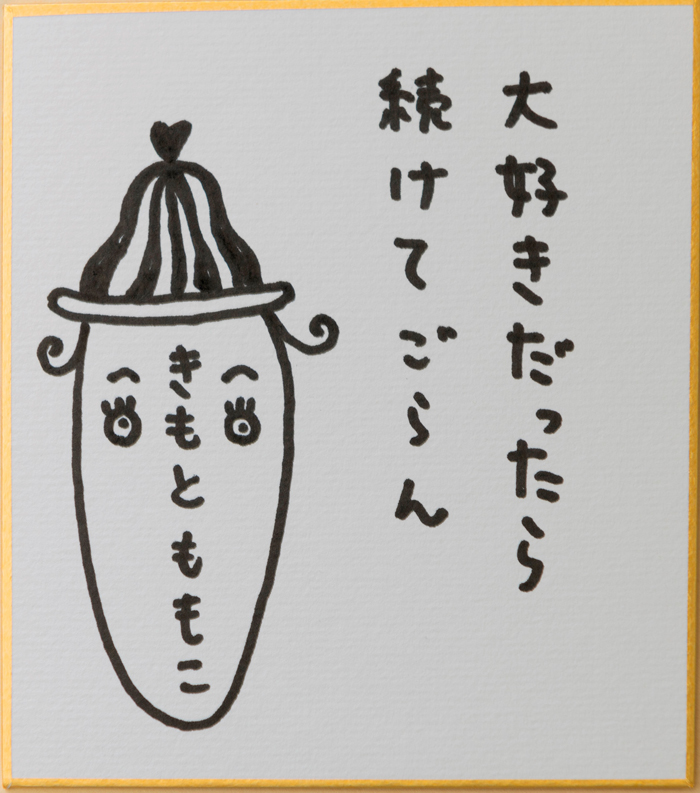 大好きだったら
続けてごらん
きもとももこ